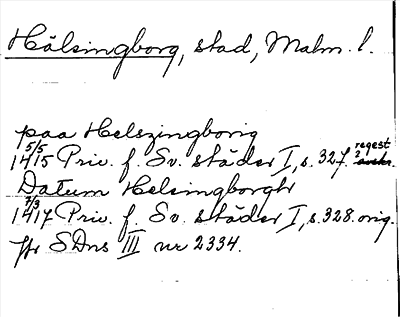 Hälsingborg, stad, Malm. l.
paa Helszingborig
14 5/5 15 Priv. f. Sv. städer I, s. 327. regest
Datum Helsingborgh
14 2/3 17 Priv. f. Sv. städer I, s. 328. orig.
Jfr SDns III nr 2334.